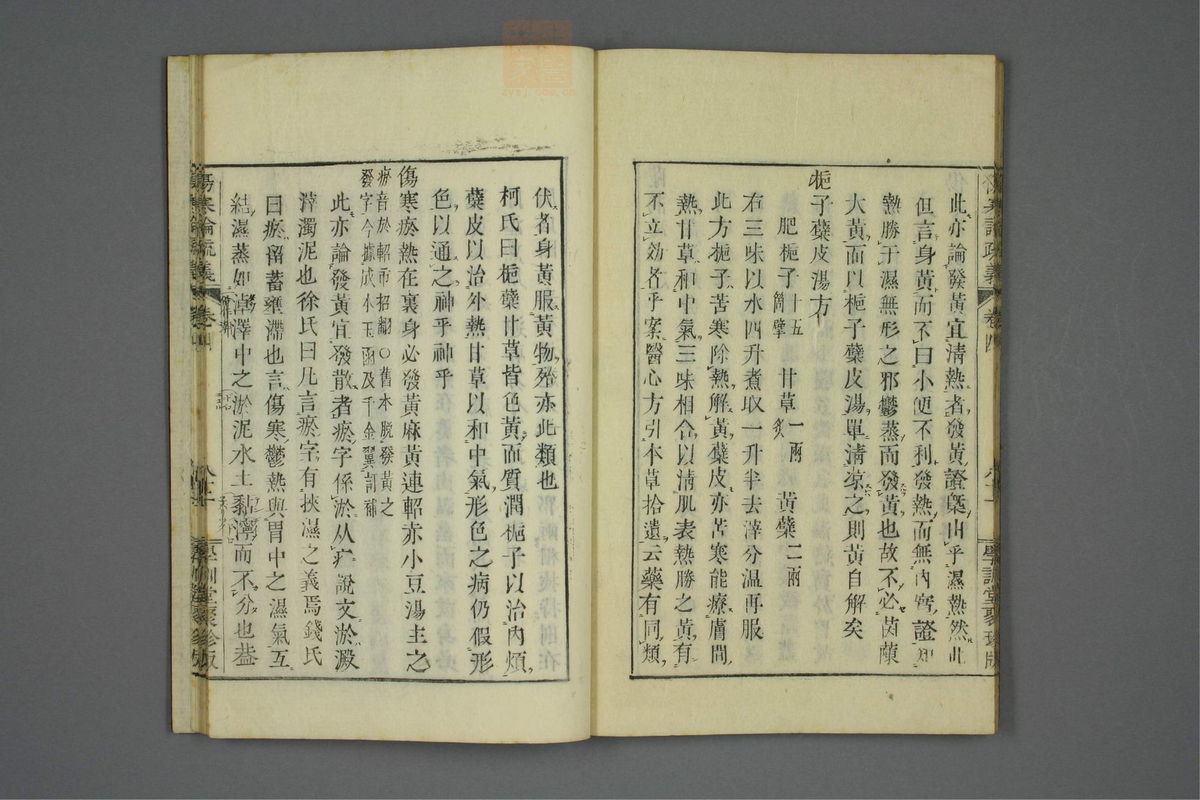 傷寒論疏義 卷四 學訓堂聚珍版
此亦論發黃宜清熱者發黃證槀山乎濕熱然此
但言身黃而不曰小便不利發熱而無內實證
熱勝于濕無形之邪鬱蒸而發黃也故不必茵蔯
大黃而以梔子蘗皮湯單清涼之則黃自解矣
梔子蘗皮湯方
肥梔子十五箇擘 甘草一兩炙 黃蘗二兩
右三味以水四升煮取一升半去滓分溫再服
此方梔子苦寒除熱解黃蘗皮亦苦寒能療膚間
熱甘草和中氣三味相合以清肌表熱勝之黃有
不立効者乎案醫心方引本草拾遺云藥有同類
伏者身黃服黃物殁亦此類也
柯氏曰梔蘗甘草皆色黃而質潤梔子以治內煩
蘗皮以治外熱甘草以和中氣形色之病仍假形
色以通之神乎神乎
傷寒瘀熱在裏身必發黃麻黃連軺亦小豆湯主之
瘀音於軺市招翻○舊本脫發黃之
發字今據成本玉函及千金翼訂補
此亦論發黃宜發散者瘀字係淤从疒說文淤澱
滓濁泥也徐氏曰凡言瘀字有挾濕之義焉錢氏
曰瘀留蓄壅滯也言傷寒鬱熱與胃中之濕氣互
結濕蒸如淖澤中之淤泥水土黏濘而不分也葢
傷寒論疏義 卷四 學訓堂聚珍版